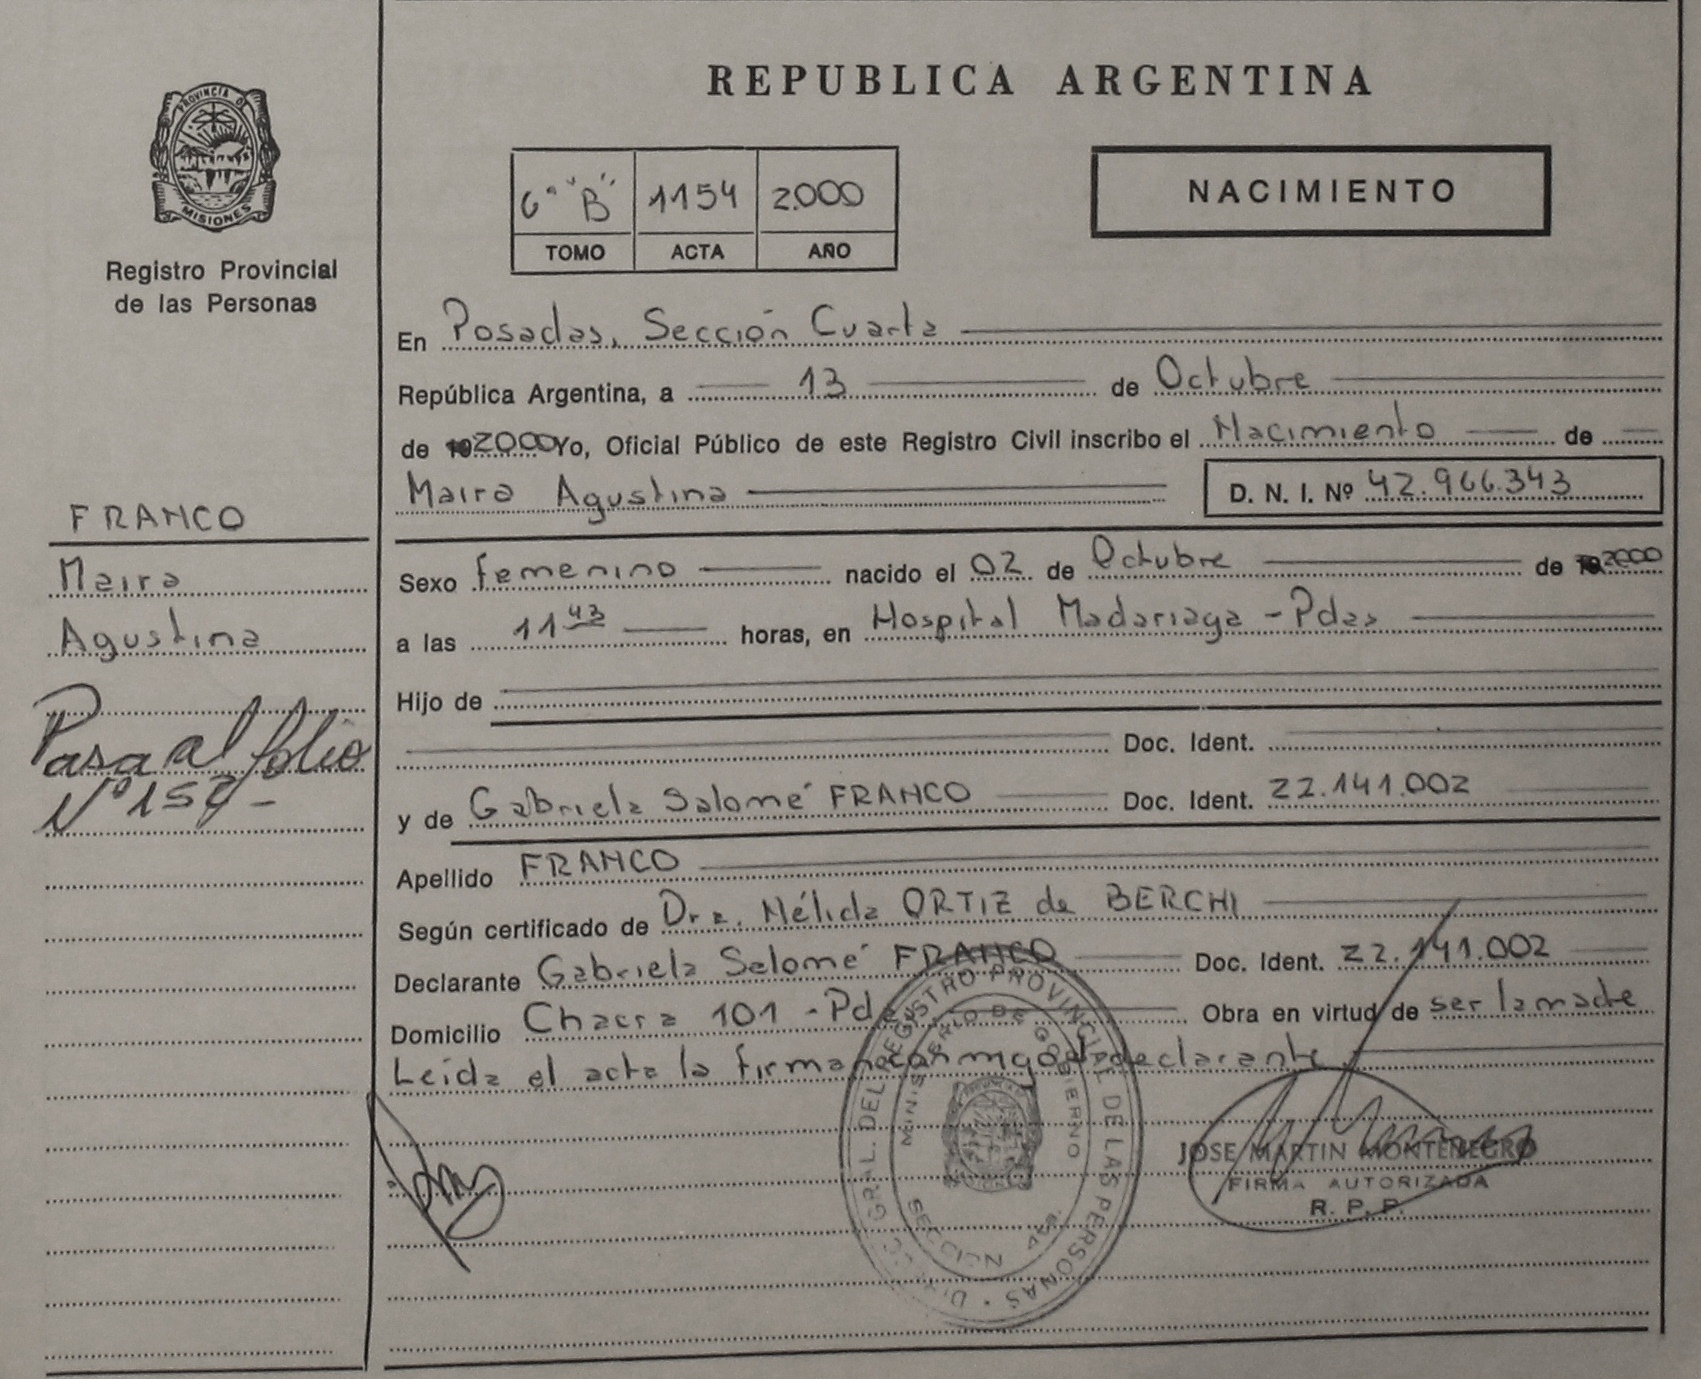 REPUBLICA ARGENTINA
PROVINCIA DE
MISIONES
Registro Provincial
de las Personas
6° "B" 1154 2.000
TOMO ACTA AÑO
NACIMIENTO
En Posadas, Sección Cuarta
República Argentina, a 13 de Octubre
de 2000 Yo, Oficial Público de este Registro Civil inscribo el Nacimiento de
Maira Agustina D. N. I. Nº 42.966.343
FRANCO
Maira
Agustina
Pasa al folio
Nº 157-
Sexo Femenino nacido el 02 de Octubre de 2000
a las 11 43 horas, en Hospital Madariaga - Pdas
Hijo de
Doc. Ident.
y de Gabriela Salomé FRANCO Doc. Ident. 22.141.002
Apellido FRANCO
Según certificado de Dra. Nélida ORTIZ de BERCHI
Declarante Gabriela Salomé FRANCO Doc. Ident. 22.141.002
Domicilio Chacra 101 - Pdas Obra en virtud de ser la madre
Leída el acta la firman conmigo declarante
GRAL. DEL REGISTRO PROVINCIAL DE LAS PERSONAS
MINISTERIO DE GOBIERNO
SECCION
JOSE MARTIN MONTENEGRO
FIRMA AUTORIZADA
R. P. P.